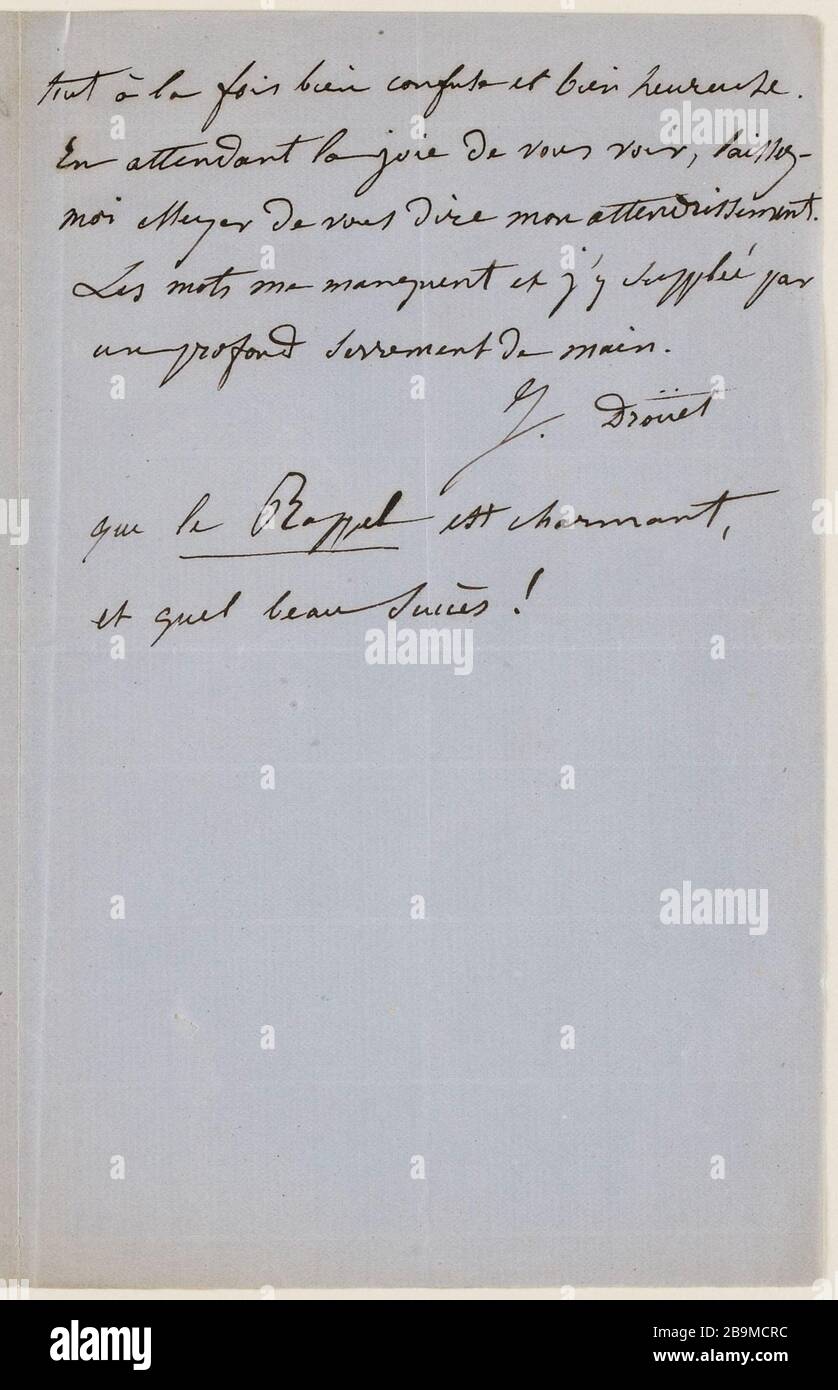 tout à la fois bien confuse et bien heureuse.
En attendant la joie de vous voir, laissez-
moi essayer de vous dire mon attendrissement.
Les mots me manquent et j'y supplée par
un profond serrement de main.
J. Droüet
que le Rappel est charmant,
et quel beau succès !
alamy
Image ID: 2B9MCRC
www.alamy.com